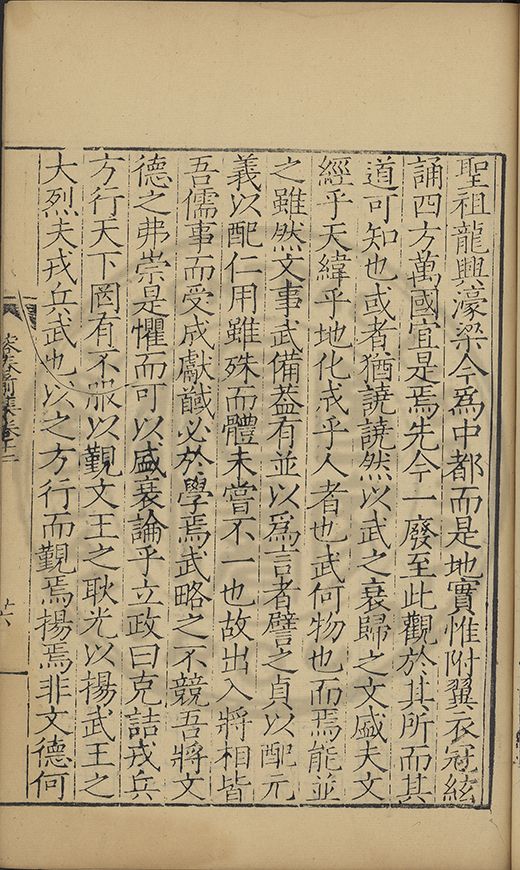 聖祖龍興濠梁今爲中都而是地實惟附翼衣冠絃
誦四方萬國宜是焉先今一廢至此觀於其所而其
道可知也或者猶譊譊然以武之衰歸之文盛夫文
經乎天緯乎地化戒乎人者也武何物也而焉能並
之雖然文事武備葢有並以爲言者譬之貞以配元
義以配仁用雖殊而體未嘗不一也故出入將相皆
吾儒事而受成獻馘必於學焉武略之不競吾將文
德之弗崇是懼而可以盛衰論乎立政曰克詰戎兵
方行天下罔有不服以覲文王之耿光以揚武王之
大烈夫戎兵武也以之方行而覲焉揚焉非文德何
前集卷十二
廿六